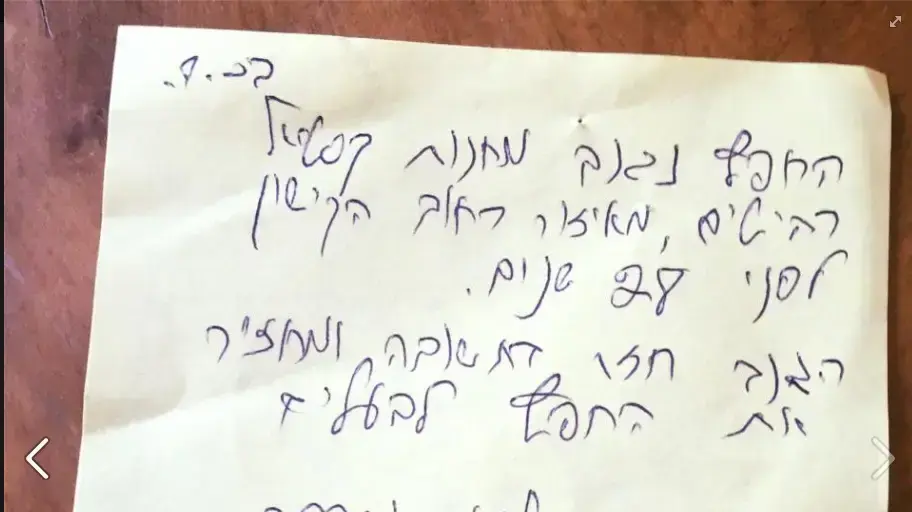 בס.ד.
החפץ נגנב מחנות קסטיאל
רהיטים, מאיזור רחוב הקישון
לפני שנים.
הגנב חזר בתשובה ומחזיר
את החפץ לבעליו